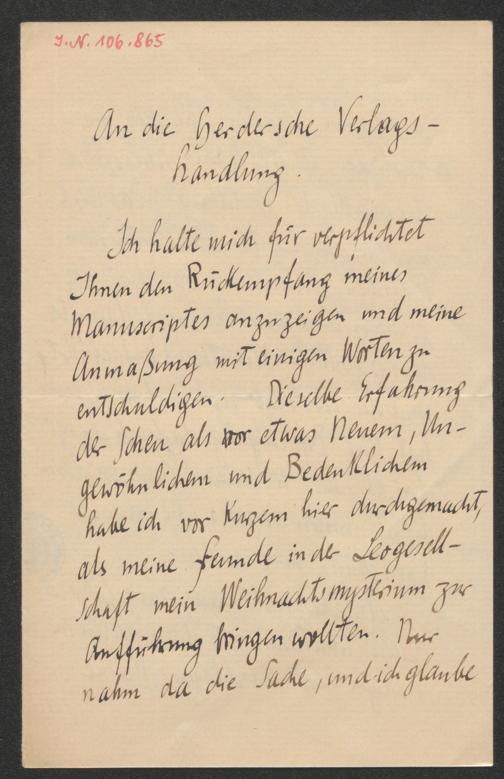 J.N. 106.865
An die Herdersche Verlags-
handlung.
Ich halte mich für verpflichtet
Ihnen den Rückempfang meines
Manuscriptes anzuzeigen und meine
Anmaßung mit einigen Worten zu
entschuldigen. Dieselbe Erfahrung
der Scheu als vor etwas Neuem, Un-
gewöhnlichem und Bedenklichem
habe ich vor Kurzem hier durchgemacht,
als meine Freunde in der Leogesell-
schaft mein Weihnachtsmysterium zur
Aufführung bringen wollten. Nur
nahm da die Sache, und ich glaube